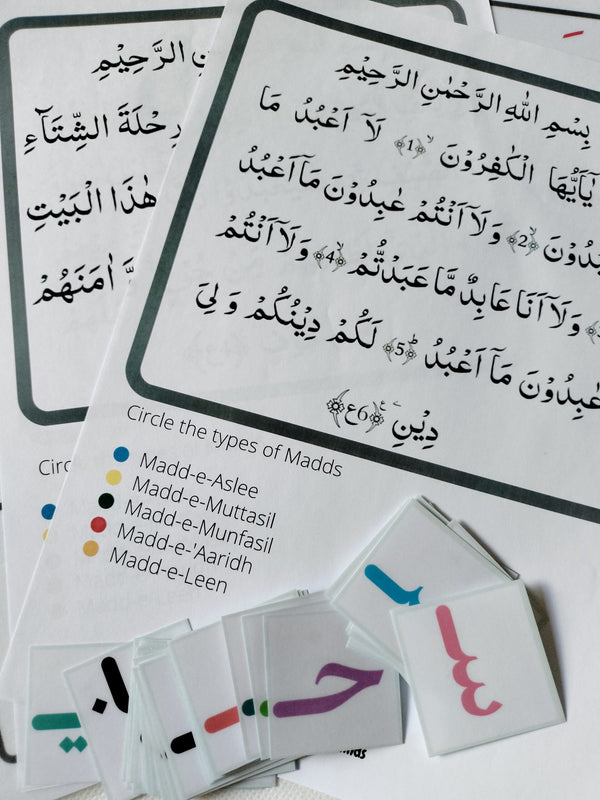 بِسْمِ اللهِ الرَّحْمٰنِ الرَّحِيْمِ
يٰٓاَيُّهَا الْكٰفِرُوْنَ ﴿1﴾ لَآ اَعْبُدُ مَا
بُدُوْنَ ﴿2﴾ وَلَآ اَنْتُمْ عٰبِدُوْنَ مَآ اَعْبُدُ
وَلَآ اَنَا عَابِدٌ مَّا عَبَدْتُّمْ ﴿4﴾ وَلَآ اَنْتُمْ
عٰبِدُوْنَ مَآ اَعْبُدُ ﴿5﴾ لَكُمْ دِيْنُكُمْ وَ لِيَ
دِيْنِ ﴿6ع﴾
Circle the types of Madds
Madd-e-Aslee
Madd-e-Muttasil
Madd-e-Munfasil
Madd-e-'Aaridh
Madd-e-Leen
نِ الرَّحِيْمِ
رِحْلَةَ الشِّتَآءِ
هٰذَا الْبَيْتِ
اٰمَنَهُمْ
Circ
حـ
سـ